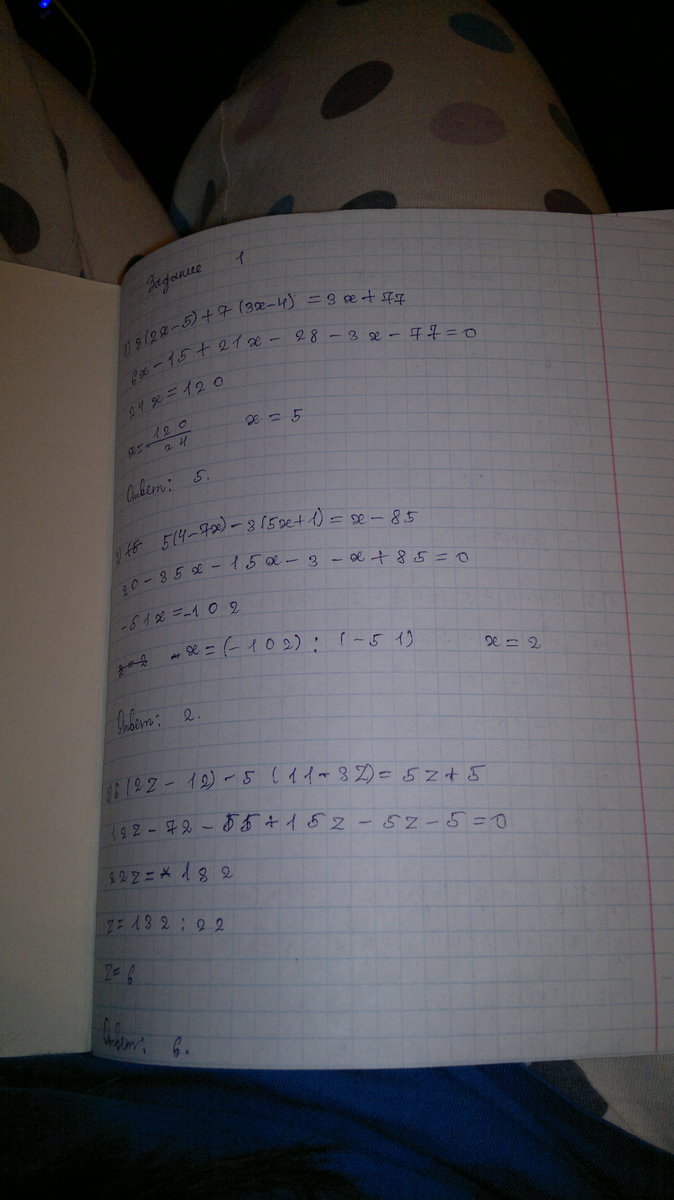 Задание 1
1) 3(2x-5)+7(3x-4)=3x+77
6x-15+21x-28-3x-77=0
24x=120
x=120/24 x=5
Ответ: 5.
2) 5(4-7x)-3(5x+1)=x-85
20-35x-15x-3-x+85=0
-51x=-102
x=(-102):(-51) x=2
Ответ: 2.
(2z-12)-5(11-3z)=5z+5
12z-72-55+15z-5z-5=0
22z=132
z=132:22
z=6
Ответ: 6.